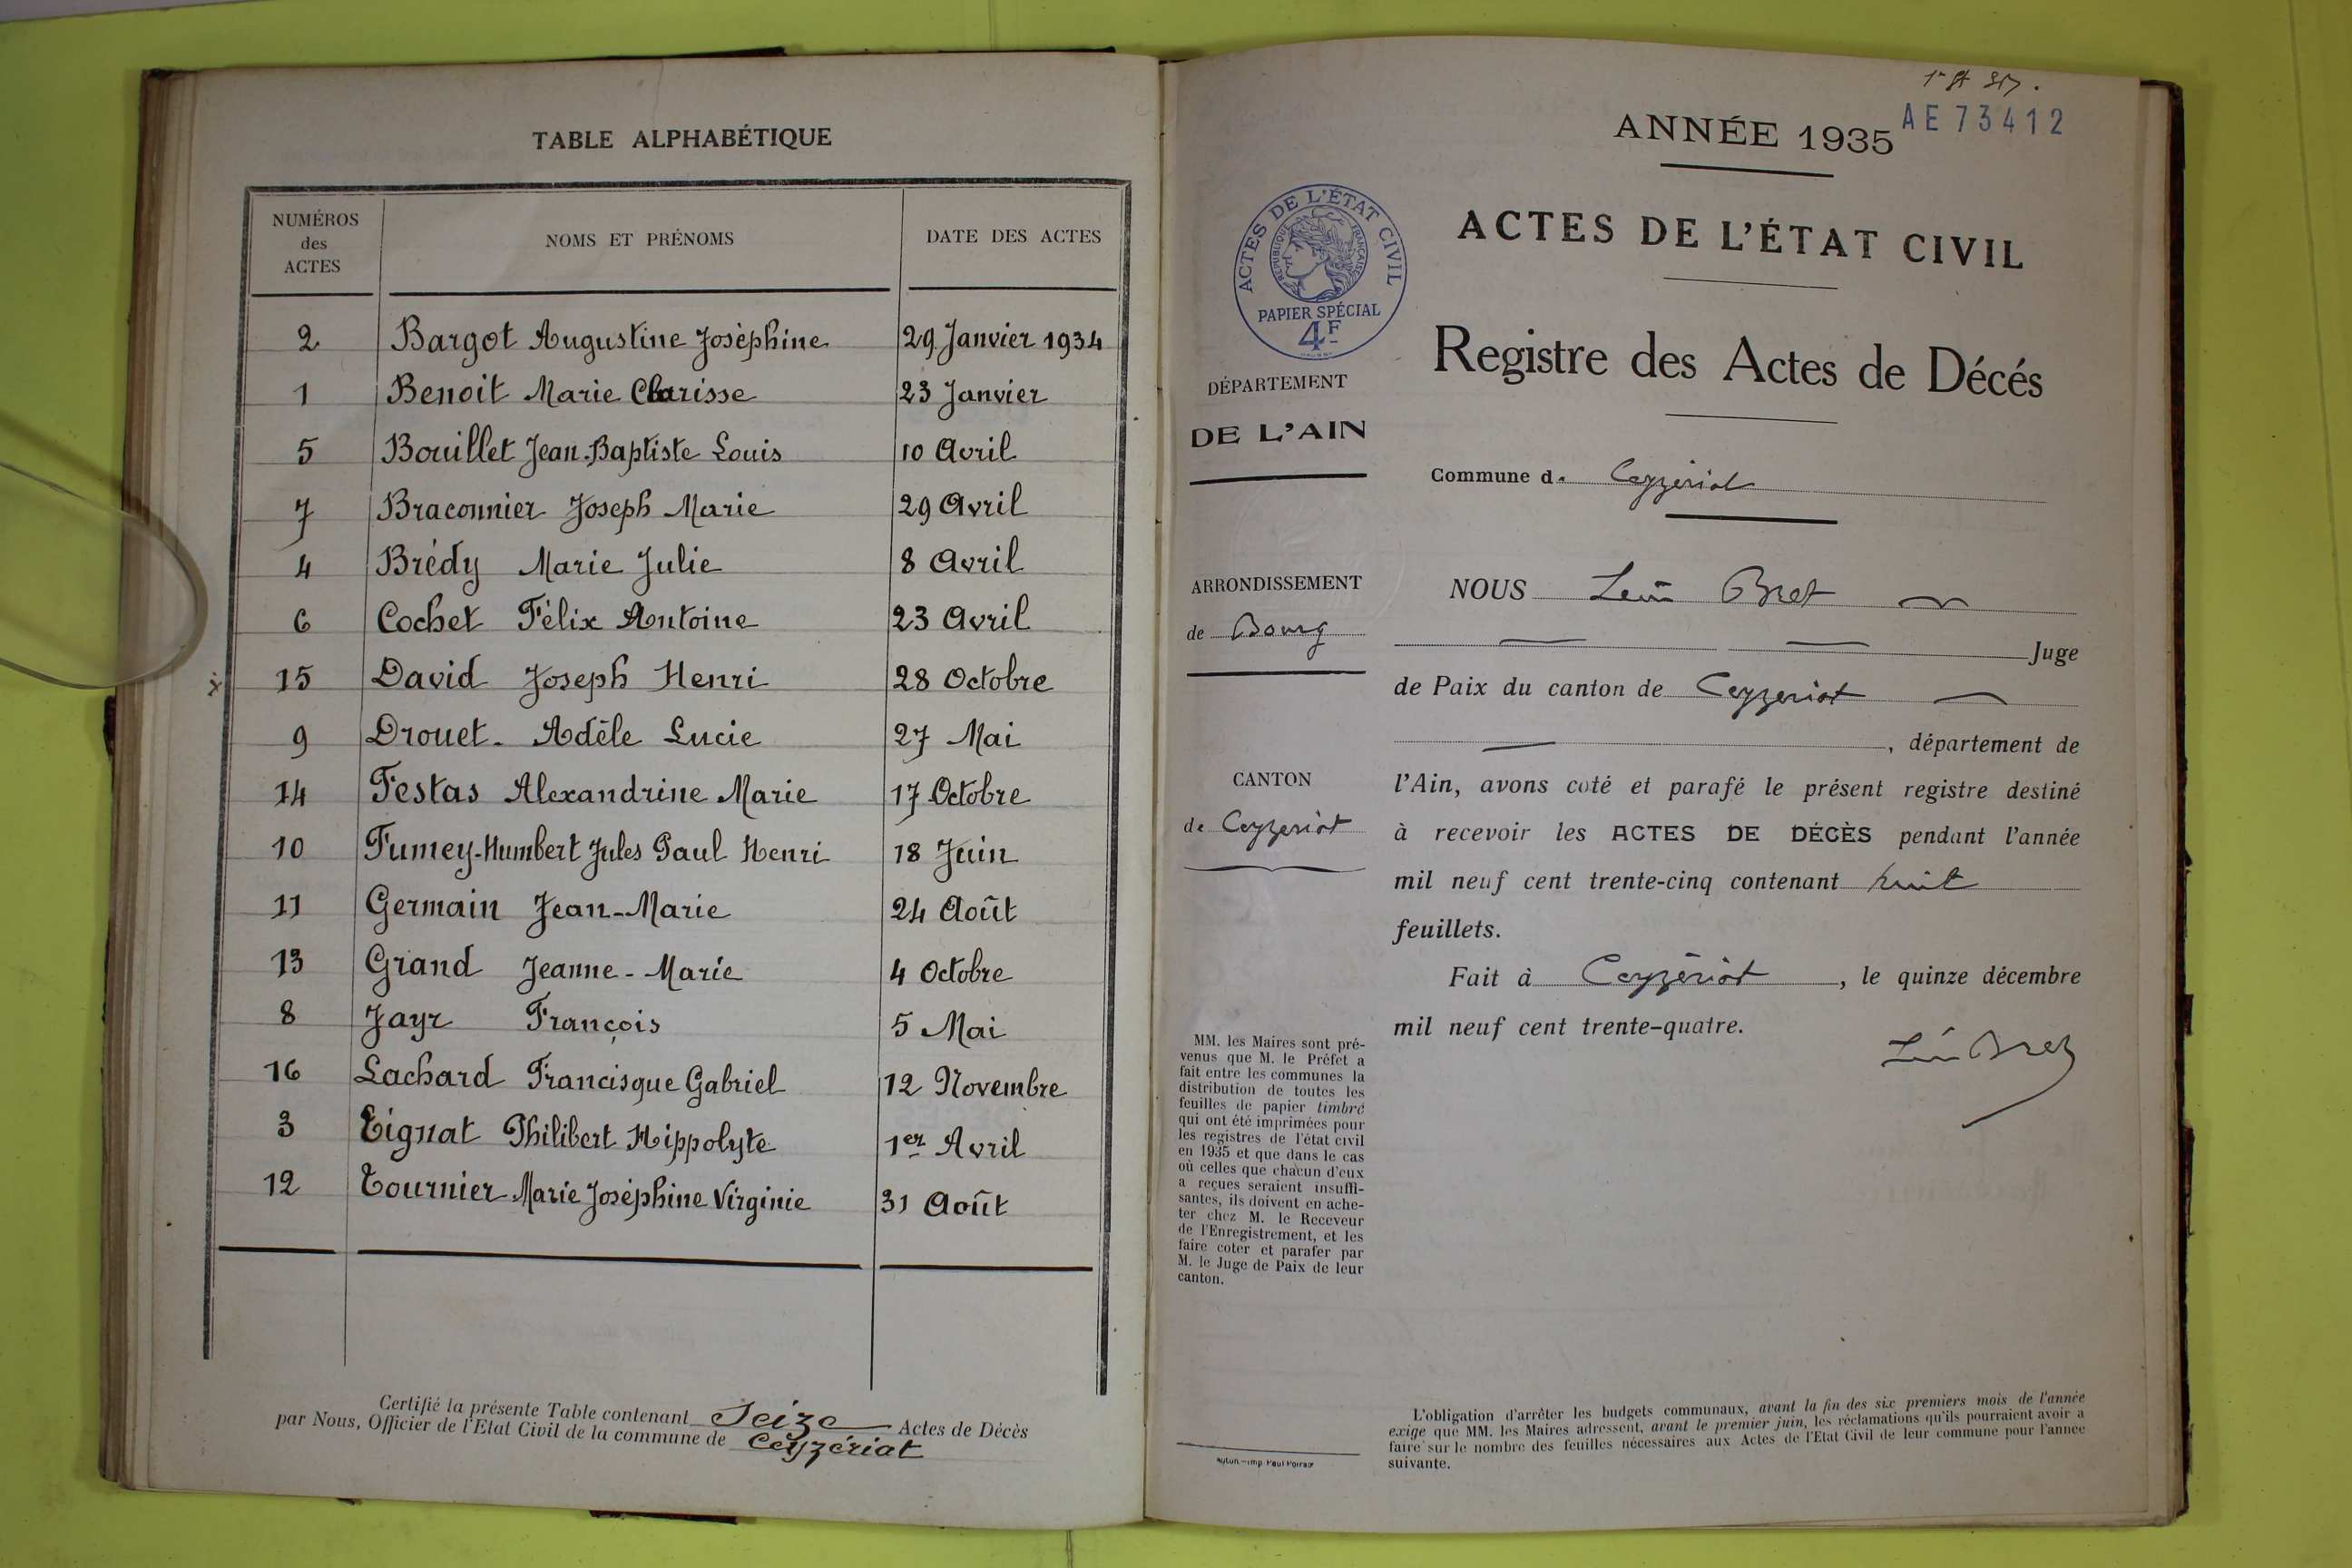 TABLE ALPHABÉTIQUE
NUMÉROS
des
ACTES
NOMS ET PRÉNOMS
DATE DES ACTES
2 Bargot Augustine Josèphine 29 Janvier 1934
1 Benoit Marie Clarisse 23 Janvier
5 Bouillet Jean-Baptiste Louis 10 Avril
7 Braconnier Joseph Marie 29 Avril
4 Brédy Marie Julie 8 Avril
6 Cochet Félix Antoine 23 Avril
15 David Joseph Henri 28 Octobre
9 Drouet. Adèle Lucie 27 Mai
14 Festas Alexandrine Marie 17 Octobre
10 Fumey-Humbert Jules Paul Henri 18 Juin
11 Germain Jean-Marie 24 Août
13 Grand Jeanne-Marie 4 Octobre
8 Jayr François 5 Mai
16 Lachard Francisque Gabriel 12 Novembre
3 Tignat Philibert Hippolyte 1er Avril
12 Tournier Marie Joséphine Virginie 31 Août
Certifié la présente Table contenant Seize Actes de Décès
par Nous, Officier de l'Etat Civil de la commune de Ceyzériat
AE 73412
ANNÉE 1935
ACTES DE L'ÉTAT CIVIL
RÉPUBLIQUE FRANÇAISE
PAPIER SPÉCIAL
4F
ACTES DE L'ÉTAT CIVIL
Registre des Actes de Décés
DÉPARTEMENT
DE L'AIN
Commune de Ceyzériat
ARRONDISSEMENT
de Bourg
CANTON
de Ceyzeriat
NOUS Léon Bret
Juge
de Paix du canton de Ceyzeriat
, département de
l'Ain, avons coté et parafé le présent registre destiné
à recevoir les ACTES DE DÉCÈS pendant l'année
mil neuf cent trente-cinq contenant huit
feuillets.
Fait à Ceyzériat, le quinze décembre
mil neuf cent trente-quatre.
Léon Bret
MM. les Maires sont pré-
venus que M. le Préfet a
fait entre les communes la
distribution de toutes les
feuilles de papier timbré
qui ont été imprimées pour
les registres de l'état civil
en 1935 et que dans le cas
où celles que chacun d'eux
a reçues seraient insuffi-
santes, ils doivent en ache-
ter chez M. le Receveur
de l'Enregistrement, et les
faire coter et parafer par
M. le Juge de Paix de leur
canton.
L'obligation d'arrêter les budgets communaux, avant la fin des six premiers mois de l'année
exige que MM. les Maires adressent, avant le premier juin, les réclamations qu'ils pourraient avoir a
faire sur le nombre des feuilles nécessaires aux Actes de l'Etat Civil de leur commune pour l'année
suivante.